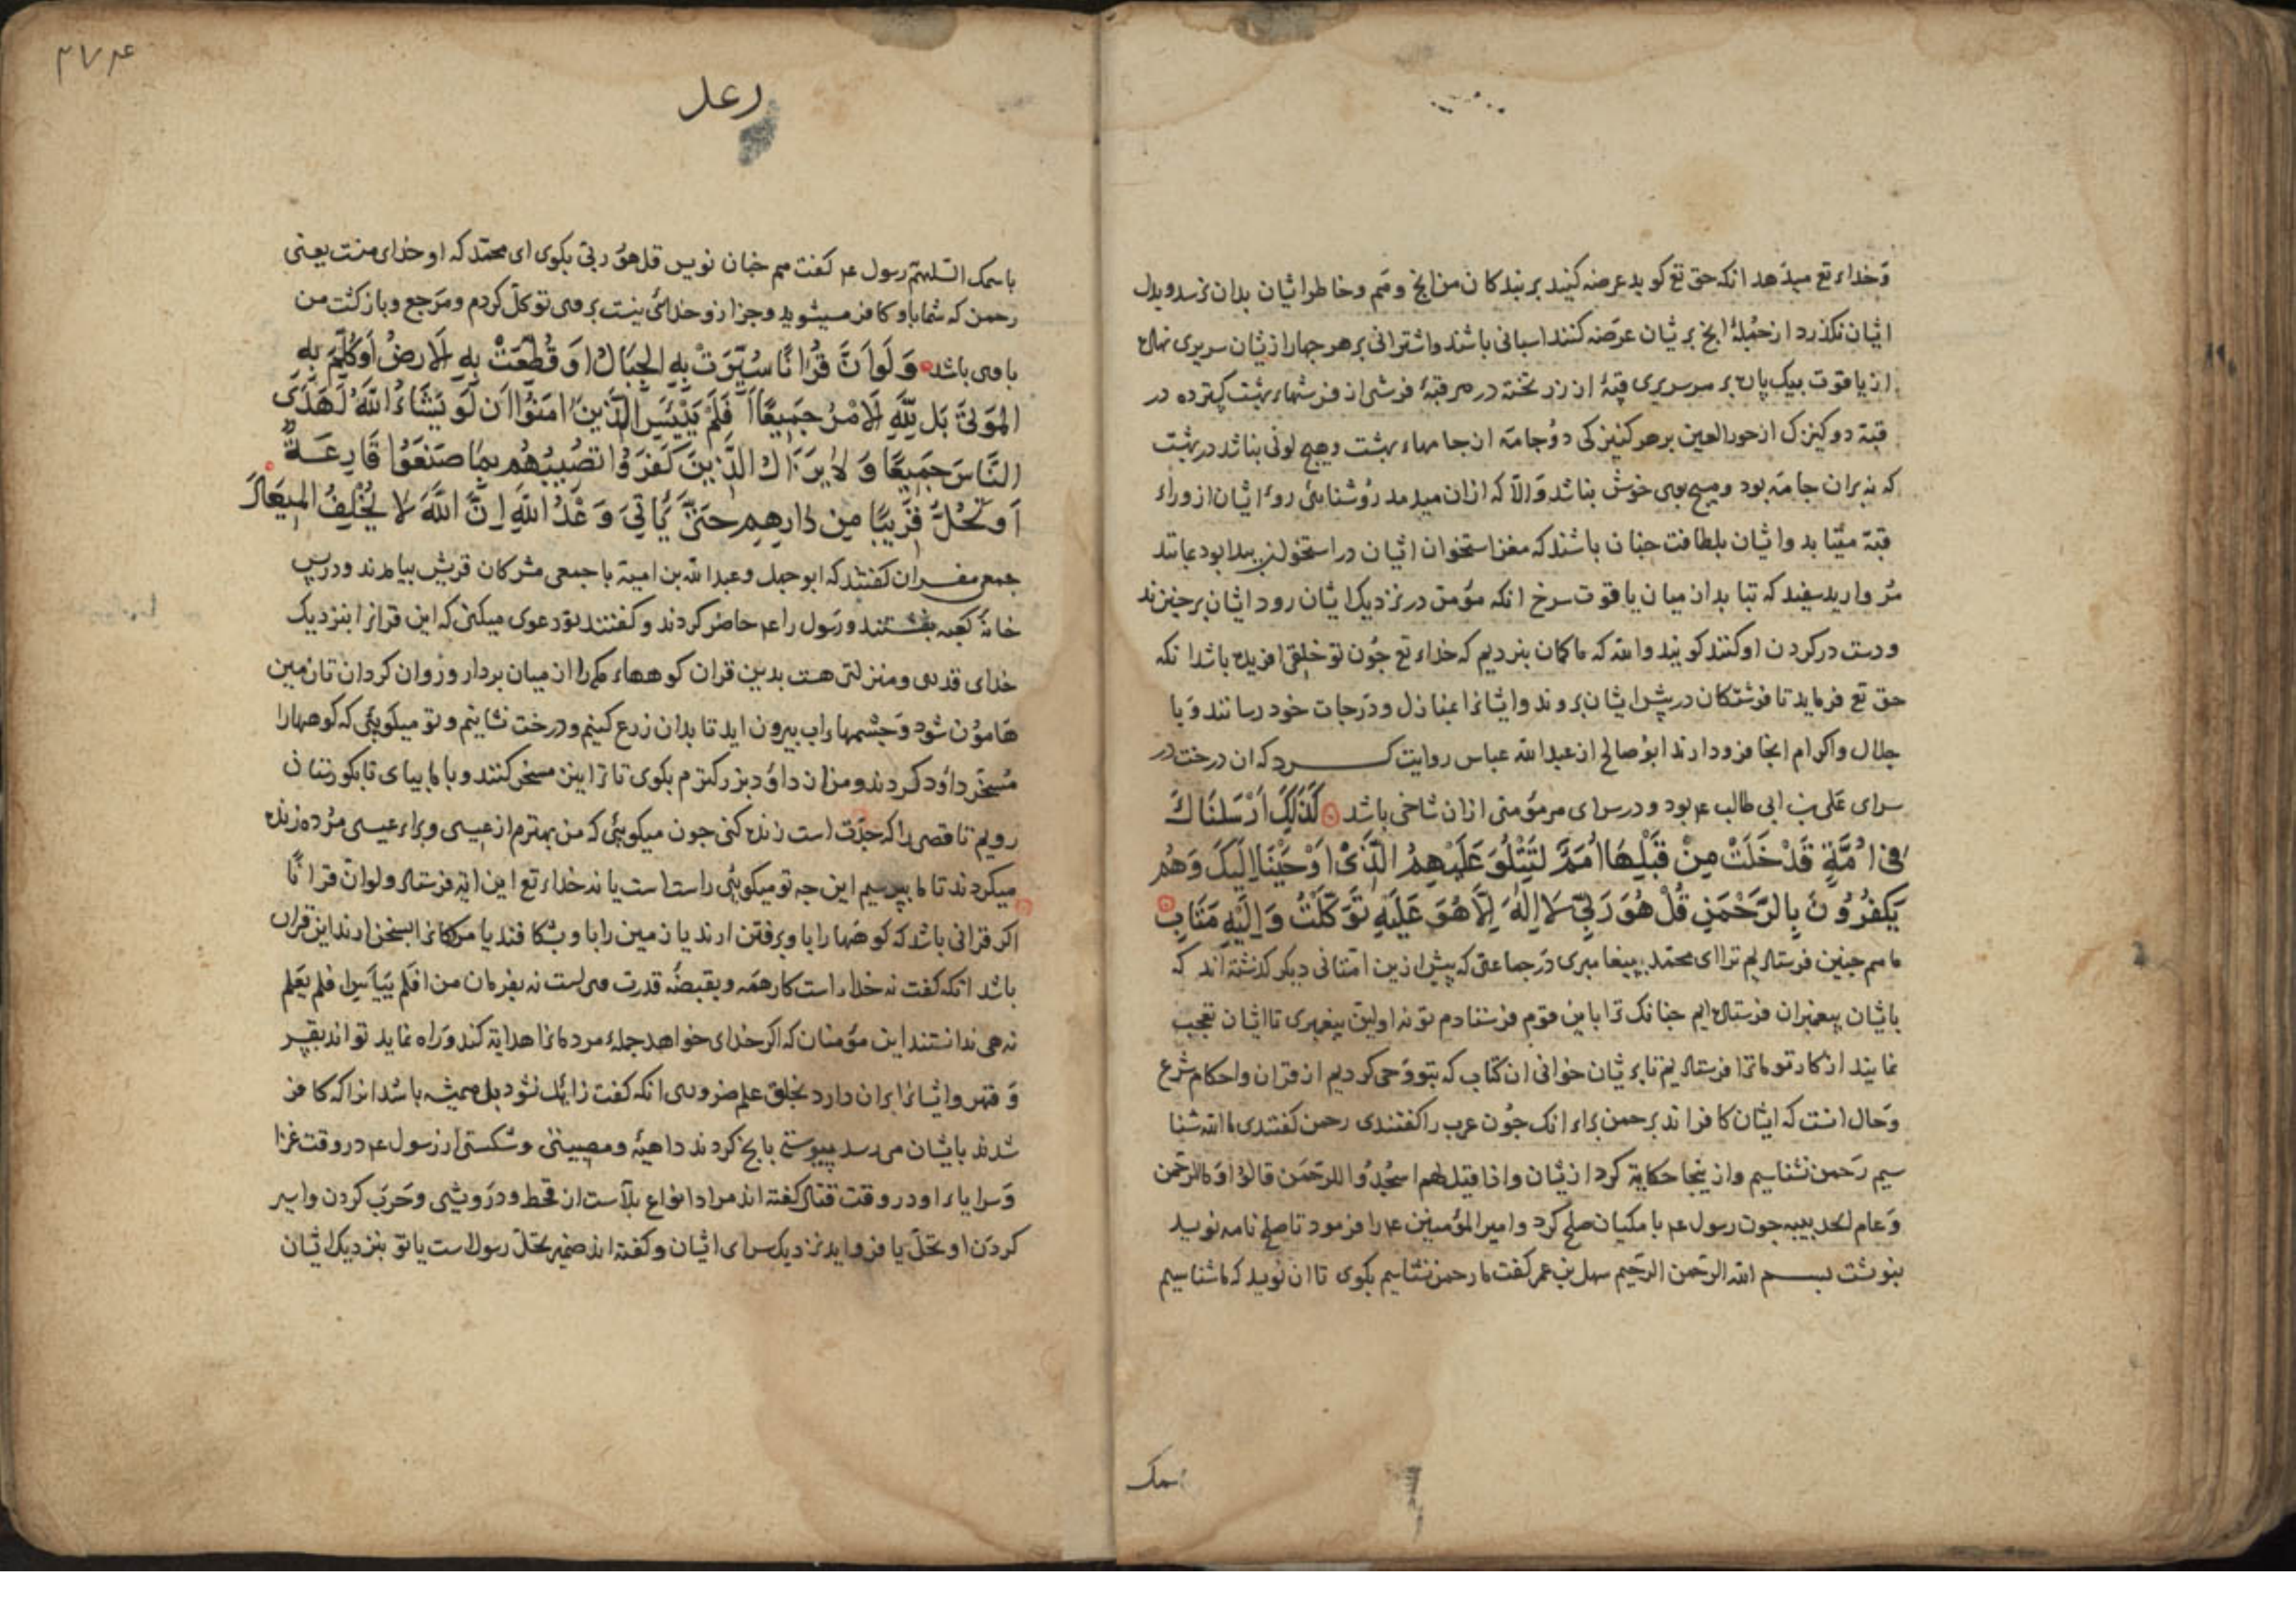 وخداء تع میدهد انکه حق تع کوید عرضه کنید بر بندکان من انچ وهم وخاطر ایشان بدان نرسد وبدل
ایشان نکذرد از جملهٔ انچ بریشان عرضه کنند اسبانی باشند واشترانی بر هر چهار ازیشان سریری نهاده
از یاقوت بیک پاره بر هر سریری قبهٔ از زر تخته در هر قبهٔ فرشی از فرشهاء بهشت کسترده در
قبة دو کنیزک از حور العین بر هر کنیزکی دو جامه از جامهاء بهشت وهیچ لونی نباشد در بهشت
که نه بران جامه بود وهیچ بوی خوش نباشد والا که ازان میدمد روشنایی روء ایشان از وراء
قبة میتابد وایشان بلطافت چنان باشند که مغز استخوان ایشان در استخوان پیدا بود بمانند
مروارید سفید که تبابد از میان یاقوت سرخ انکه مؤمن در نزدیک ایشان رود ایشان برخیزند
ودست در کردن او کنند کویند والله که ما کمان نبردیم که خداء تع چون تو خلقی افریده باشد انکه
حق تع فرماید تا فرشتکان در پیش ایشان بروند وایشانرا بمنازل ودرجات خود رسانند وبا
جلال واکرام انجا فرود ارند ابو صالح از عبدالله عباس روایت کرد که ان درخت در
سرای علی بن ابی طالب عم بود ودر سرای هر مؤمنی ازان شاخی باشد كَذَلِكَ أَرْسَلنَاكَ
فِى أُمَّةٍ قَدْ خَلَتْ مِنْ قَبْلِهَا أُمَمٌ لِتَتْلُوَ عَلَيْهِمُ الَّذِى أَوْحَيْنَا إِلَيكَ وَهُم
يَكفُرُونَ بِالرَّحْمَنِ قُلْ هُوَ رَبِّى لَا إِلَهَ إِلَّا هُوَ عَلَيهِ تَوَكَّلْتُ وَإِلَيْهِ مَتَابِ
ما همچنین فرستادیم ترا ای محمد بپیغامبری در جماعتی که پیش ازین امتانی دیکر کذشته اند که
بایشان پیغمبران فرستاده ایم چنانک ترا باین قوم فرستادم تو نه اولین پیغمبری تا ایشان تعجب
نمایند از کار تو ما ترا فرستادیم تا بریشان خوانی ان کتاب که بتو وحی کردیم از قران واحکام شرع
وحال انست که ایشان کافراند برحمن براء انک چون عرب را کفتندی رحمن کفتندی ما الله شنا
سیم رحمن نشناسیم وازینجا حکایة کرد ازیشان واذا قیل لهم اسجدوا للرحمن قالوا وما الرحمن
وعام الحدیبیه چون رسول عم با مکیان صلح کرد وامیر المؤمنین عم را فرمود تا صلح نامه نویسد
بنوشت بسم الله الرحمن الرحیم سهل بن عمر کفت ما رحمن نشناسیم بکوی تا ان نویسد که ما شناسیم
بسمک
۳۷۴
رعد
باسمک اللهم رسول عم کفت هم چنان نویس قل هو ربی بکوی ای محمد که او خدای منت یعنی
رحمن که شما باو کافر میشوید وجز ازو خدائی نیست بر وی توکل کردم ومرجع وبازکشت من
با وی باشد وَلَوْ أَنَّ قُرْانًا سُيِّرَتْ بِهِ الْجِبَالُ أَوْ قُطِّعَتْ بِهِ الْارضُ أَوْ كُلِّمَ بِهِ
الْمَوتَى بَل لِلَّهِ الْامْرُ جَمِيعًا أَفَلَمْ يَيْئَسِ الَّذِينَ امَنُوا أَن لَو يَشَاءُ اللَّهُ لَهَدَى
النَّاسَ جَمِيعًا وَلَا يَزَالُ الَّذِينَ كَفَرُوا تُصِيبُهُم بِمَا صَنَعُوا قَارِعَةٌ
أَو تَحُلُّ قَرِيبًا مِن دَارِهِم حَتَّى يَأتِىَ وَعْدُ اللَّهِ إِنَّ اللَّهَ لَا يُخْلِفُ الْمِيعَادَ
جمعی مفسران کفتند که ابو جهل وعبدالله بن امیة با جمعی مشرکان قریش بیامدند ودر پس
خانهٔ کعبه بنشستند ورسول را عم حاضر کردند وکفتند تو دعوی میکنی که این قرانرا بنزدیک
خدای قدری ومنزلتی هست بدین قران کوههاء مکه را از میان بردار وروان کردان تا زمین
هامون شود وچشمهاء اب بیرون اید تا بدان زرع کنیم ودرخت نشانیم وتو میکویئی که کوهها را
مسخر داود کردند ومن از داود بزرکترم بکوی تا ترا نیز مسخر کنند وبا ما بیای تا بکورستان
رویم تا قصی را که جدت است زنده کنی چون میکویئی که من بهترم از عیسی وبراء عیسی مرده زنده
میکردند تا ما بپرسیم این چه تو میکویئی راست است یا نه خداء تع این ایة فرستاد ولو ان قرانا
اکر قرانی باشد که کوهها را باو برفتن ارند یا زمین را باو بشکافند یا مردکانرا بسخن ارند این قران
باشد انکه کفت نه خداء راست کار همه وبقبضهٔ قدرت وی است نه بفرمان من افلم ییأس ای افلم یعلم
نه می ندانستند این مؤمنان که اکر خدای خواهد جملهٔ مردمانرا هدایة کند وراه نماید تواند بقسر
وقهر وایشانرا بران دارد بخلق علم ضروری انکه کفت زایل نشود بل همیشه باشد انرا که کافر
شدند بایشان میرسد پیوسته بانچ کردند داهیهٔ ومصیبتی وشکستی از رسول عم در وقت غزا
وسرایاء او در وقت قتال کفته اند مراد انواع بلاست از قحط ودرویشی وحرب کردن واسیر
کردن او تحل یا فرو اید نزدیک سرای ایشان وکفته اند ضمیر تحل رسول است یا تو بنزدیک ایشان